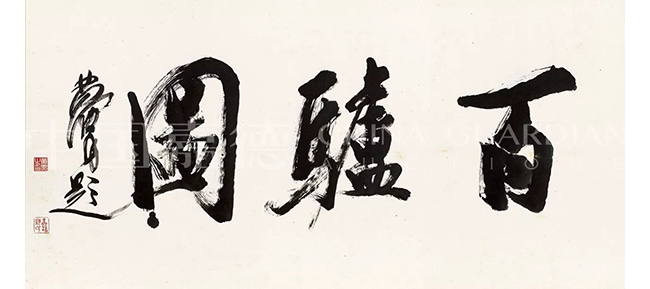 百驢圖
黄胄題
中国嘉德 CHINA GUARDIAN
AUCTIONS